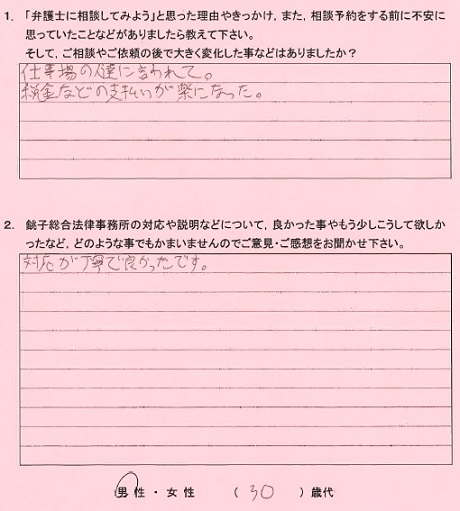 1. 「弁護士に相談してみよう」と思った理由やきっかけ，また，相談予約をする前に不安に
思っていたことなどがありましたら教えて下さい。
そして，ご相談やご依頼の後で大きく変化した事などはありましたか？
仕事場の人達に言われて。
税金などの支払いが楽になった。
2. 銚子総合法律事務所の対応や説明などについて，良かった事やもう少しこうして欲しか
ったなど，どのような事でもかまいませんのでご意見・ご感想をお聞かせ下さい。
対応が丁寧で良かったです。
男性 ・ 女性 （ 30 ）歳代